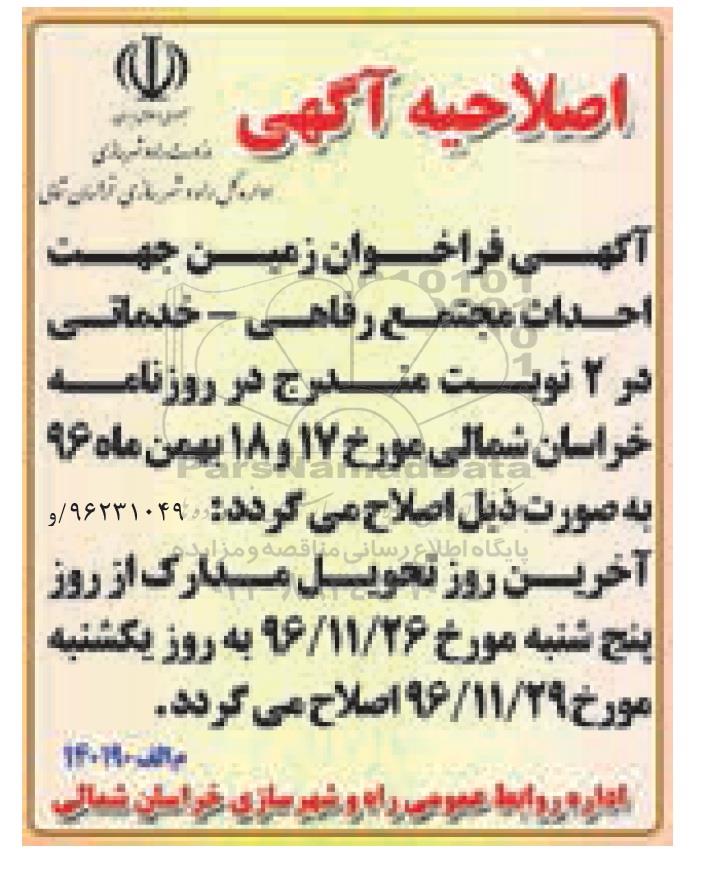 اصلاحیه آگهی
جمهوری اسلامی ایران
وزارت راه و شهرسازی
اداره کل راه و شهرسازی خراسان شمالی
آگهی فراخوان زمین جهت
احداث مجتمع رفاهی - خدماتی
در ۲ نوبت مندرج در روزنامه
خراسان شمالی مورخ ۱۷ و ۱۸ بهمن ماه ۹۶
به صورت ذیل اصلاح می گردد: ۹۶۲۳۱۰۴۹/و
آخرین روز تحویل مدارک از روز
پنج شنبه مورخ ۹۶/۱۱/۲۶ به روز یکشنبه
مورخ ۹۶/۱۱/۲۹ اصلاح می گردد.
م.الف ۱۴۰۱۹۰
اداره روابط عمومی راه و شهرسازی خراسان شمالی
ParsNamadData
پایگاه اطلاع رسانی مناقصه و مزایده